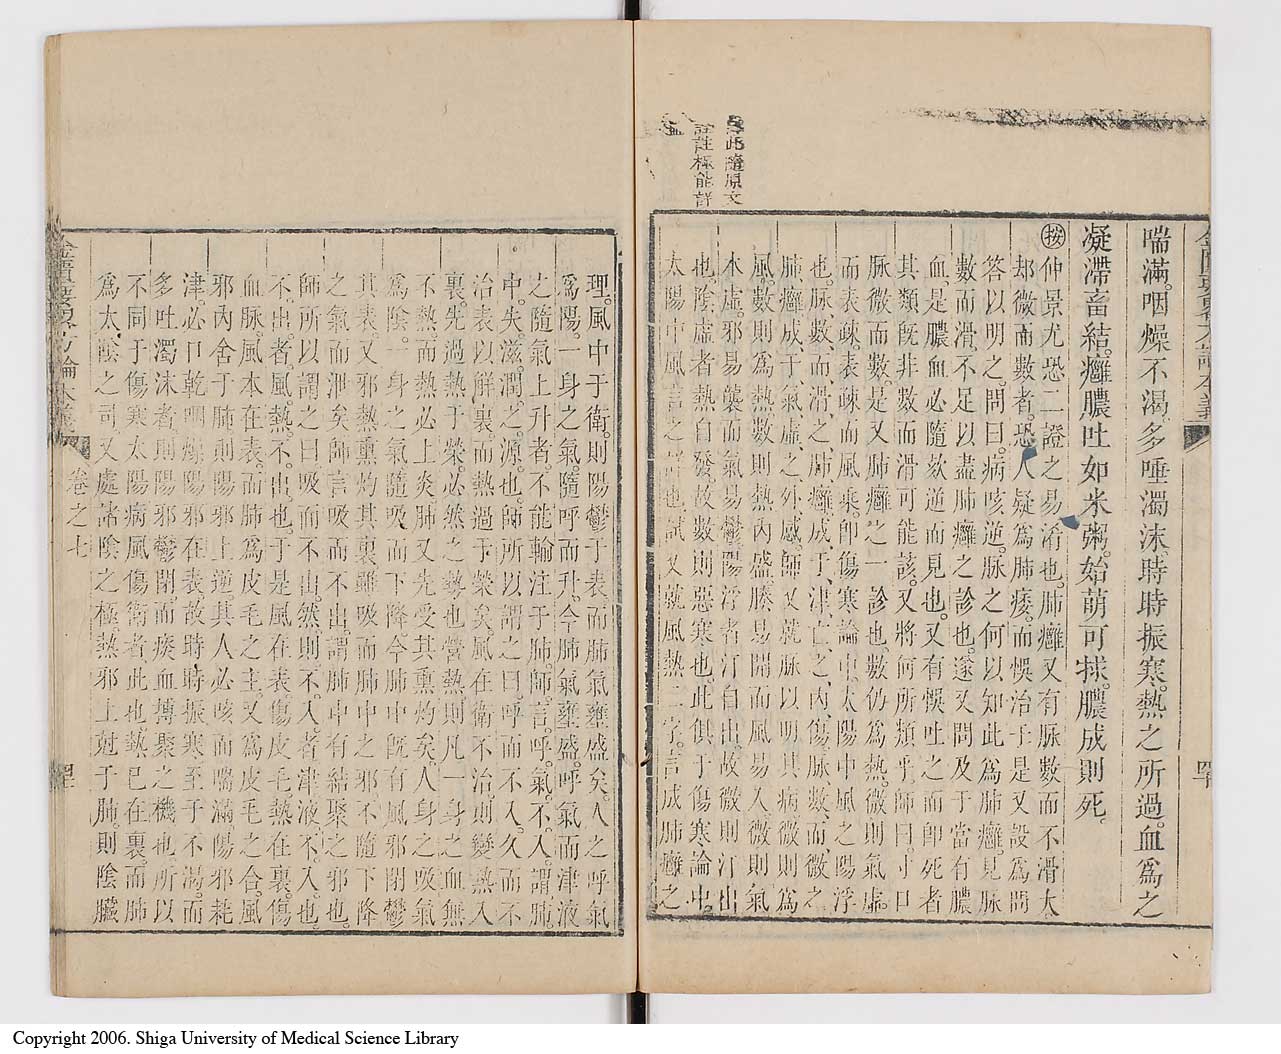 喘滿。咽燥不渴。多唾濁沫。時時振寒。熱之所過。血爲之
凝滯畜結。癰膿吐如米粥。始萌可捄。膿成則死。
按仲景尤恐二證之易淆也。肺癰又有脉數而不滑大。
却微而數者。恐人疑爲肺痿。而悞治于是又設爲問
答以明之。問曰。病咳逆。脉之何以知此爲肺癰。見脉
數而滑。不足以盡肺癰之診也。遂又問及于當有膿
血。是膿血必隨欬逆而見也。又有悞吐之而卽死者
其類旣非數而滑可能該。又將何所類乎。師曰。寸口
脉微而數。是又肺癰之一診也。數仍爲熱。微則氣虛。
而表疎。表疎而風乘。卽傷寒論中。太陽中風之陽浮
也。脉數而滑之肺癰成于津亡之內傷。脉數而微之
肺癰成于氣虛之外感。師又就脉以明其病。微則爲
風。數則爲熱。數則熱內盛。腠易開而風易入。微則氣
本虛。邪易襲而氣易鬱。陽浮者汗自出。故微則汗出
也。陰虛者熱自發。故數則惡寒也。此俱于傷寒論中。
太陽中風言之詳也。試又就風熱二字。言成肺癰之
此隨原文
註極能詳
理。風中于衛。則陽鬱于表而肺氣壅盛矣。人之呼氣
爲陽。一身之氣。隨呼而升。今肺氣壅盛。呼氣而津液
之隨氣上升者。不能輸注于肺。師言。呼氣不入。謂肺
中。失滋潤之源也。師所以謂之曰。呼而不入。久而不
治表以解裏。而熱過于榮矣。風在衛不治則變熱入
裏。先過熱于榮。必然之勢也。營熱則凡一身之血無
不熱。而熱必上炎。肺又先受其熏灼矣。人身之吸氣
爲陰。一身之氣隨吸而下降。今肺中旣有風邪閉鬱
其表。又邪熱熏灼其裏。雖吸而肺中之邪不隨下降
之氣而泄矣。師言吸而不出。謂肺中有結聚之邪也。
師所以謂之曰吸而不出。然則不入者津液不入也。
不出者。風熱不出也。于是風在表傷皮毛。熱在裏傷
血脉。風本在表。而肺爲皮毛之主。又爲皮毛之合。風
邪內舍于肺。則陽邪上逆。其人必咳而喘滿。陽邪耗
津。必口乾咽燥。陽邪在表。故時時振寒。至于不渴。而
多吐濁沫者。則陽邪鬱閉而痰血摶聚之機也。所以
不同于傷寒太陽病風傷衛者此也。熱已在裏。而肺
爲太陰之司。又處諸陰之極。熱邪上射于肺。則陰臟
卷之七